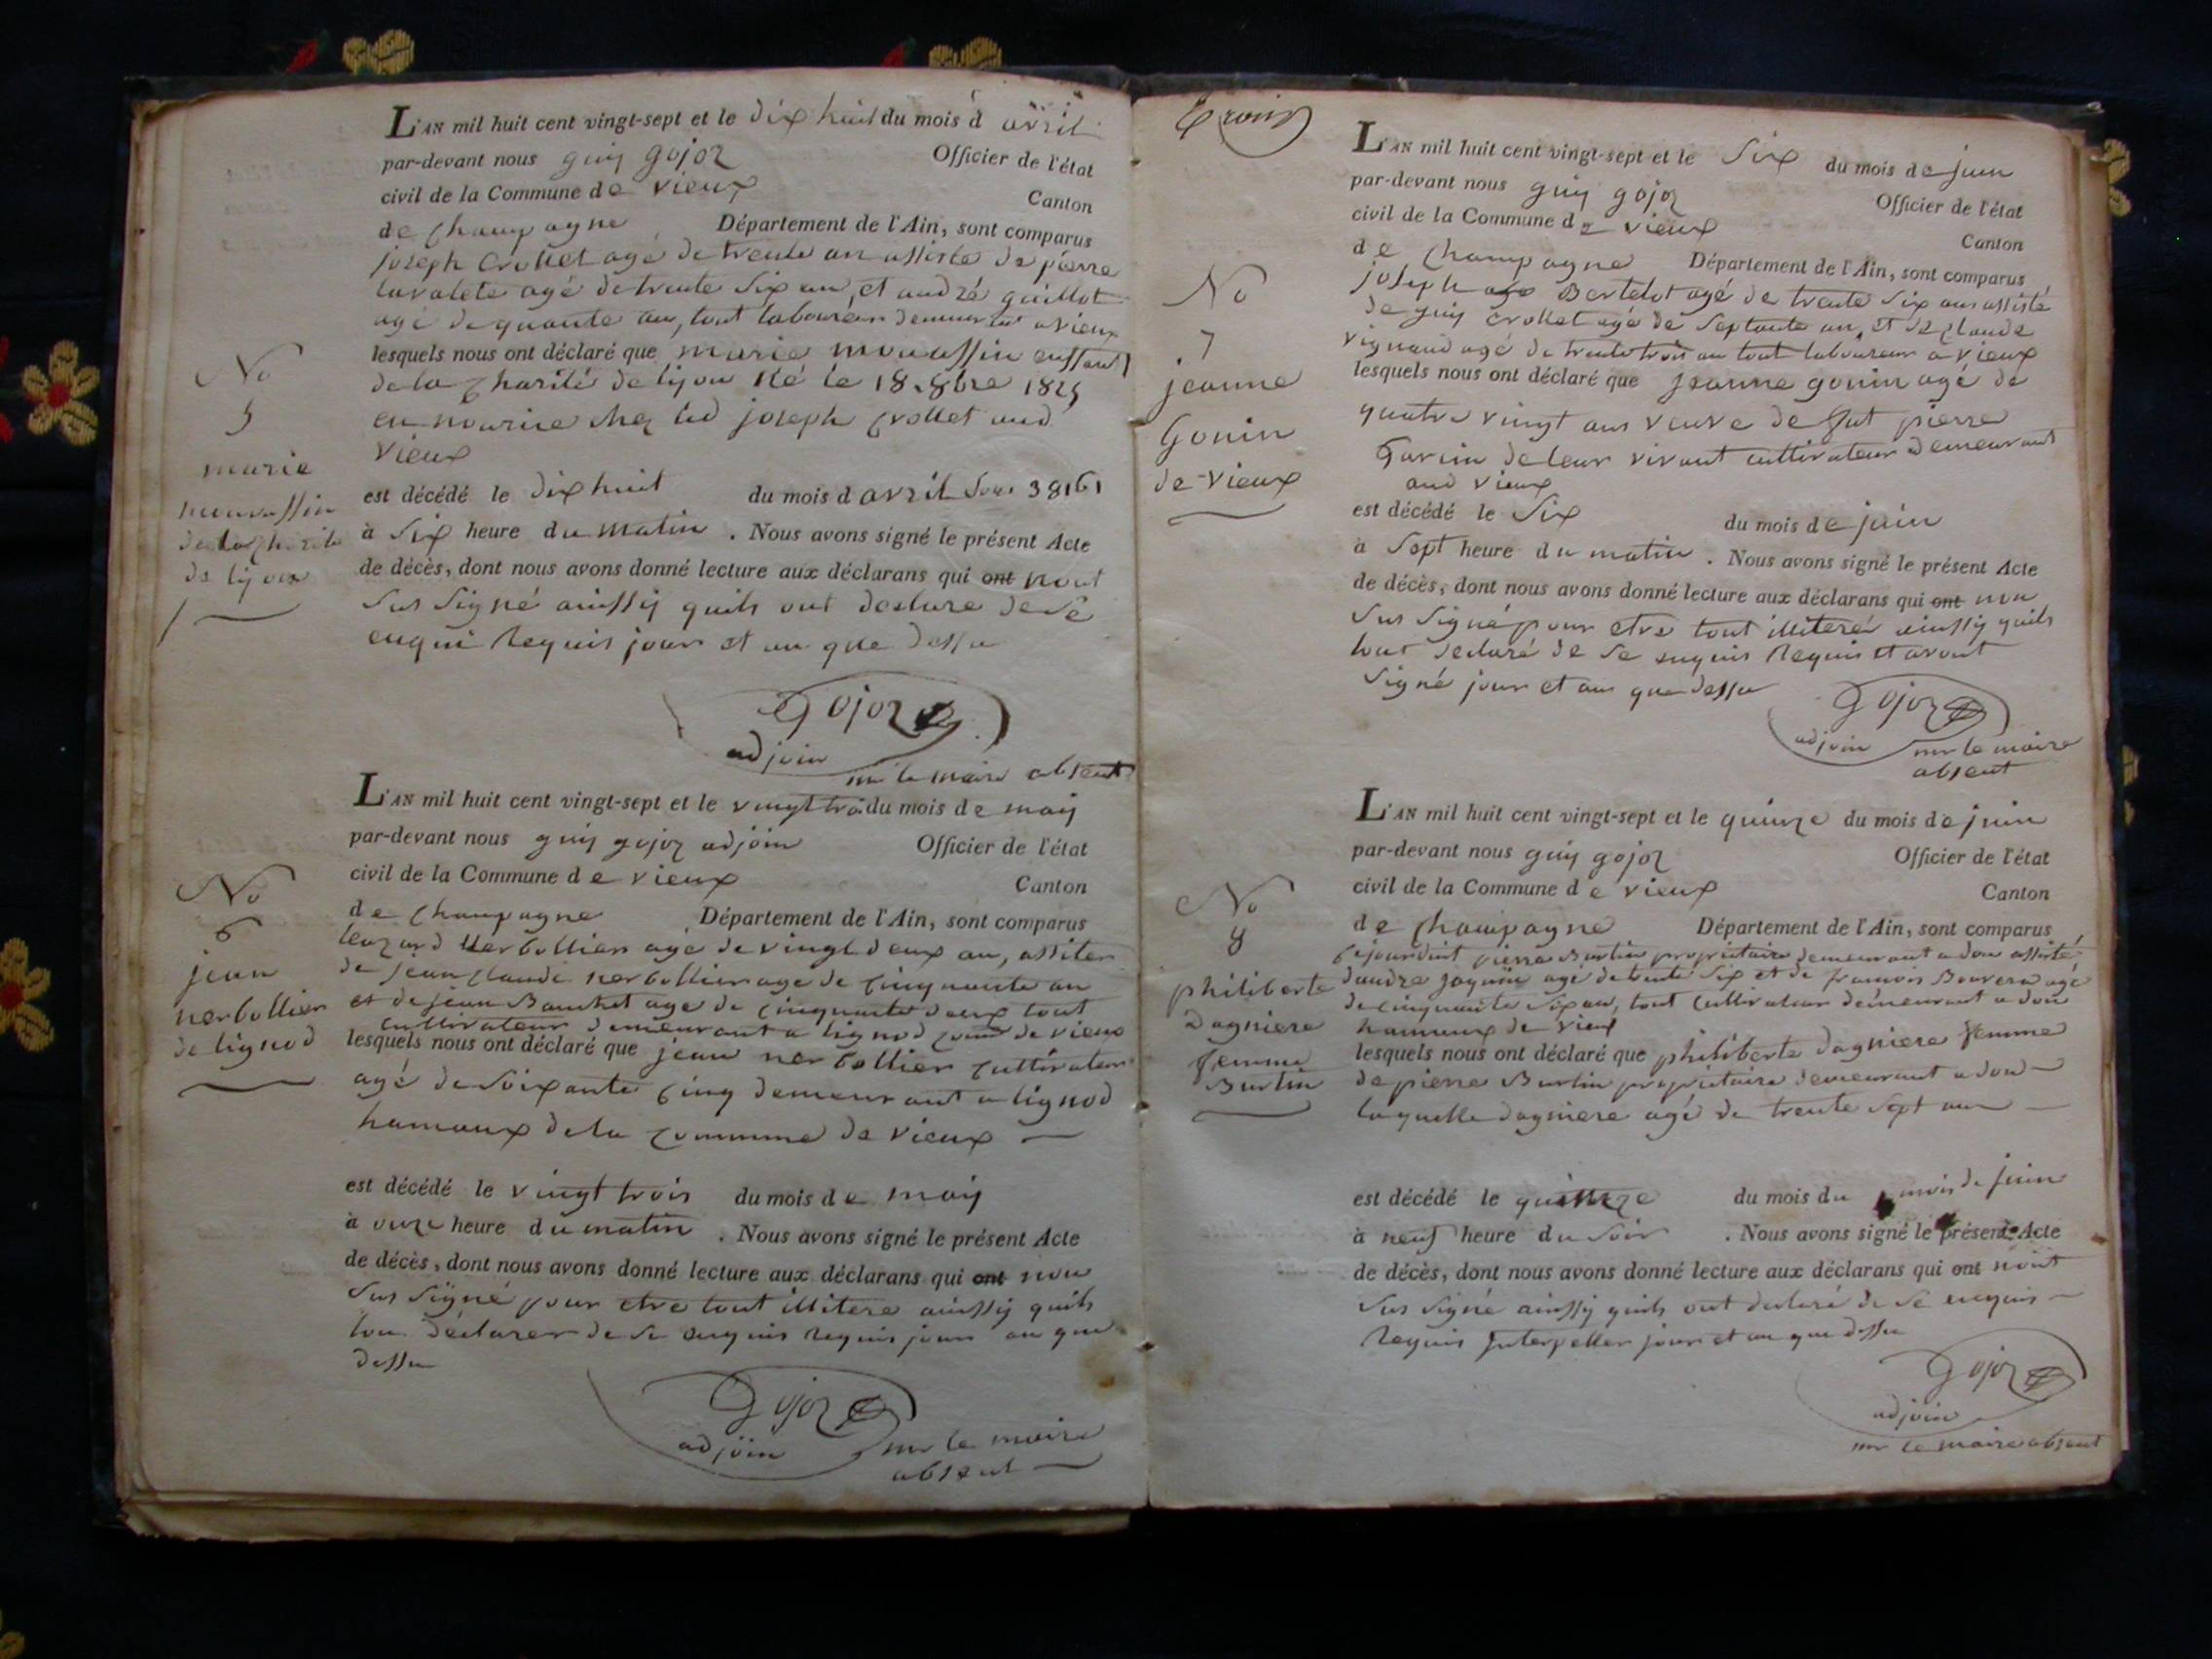 L'AN mil huit cent vingt-sept et le dix huit du mois d avril
par-devant nous guy gojoz Officier de l'état
civil de la Commune de vieux Canton
de Champagne Département de l'Ain, sont comparus
joseph Crollet agé de trente an assisté de pierre
lavalete agé de trente six an, et andré guillot
agé de quante an, tout laboureur a vieux
No
5
marie
de la Charité
de lyon
lesquels nous ont déclaré que marie enffant
de la Charité de lyon Né le 18. 8bre
en nourice chez led joseph Crollet aud
vieux
est décédé le dix huit du mois d avril sous 38161
à six heure du matin . Nous avons signé le présent Acte
de décès, dont nous avons donné lecture aux déclarans qui ont nont
sus signé ainssy quils ont declare de se
enqui Requis jour et an que dessu
Gojoz
adjoin
mr le maire absent
L'AN mil huit cent vingt-sept et le vingt trois du mois de may
par-devant nous guy gojoz adjoin Officier de l'état
civil de la Commune de vieux Canton
de Champagne Département de l'Ain, sont comparus
No
6
jean
nerbollier
de lignod
nerbollier agé de vingt deux an, assiter
de jean Claude nerbollier age de Cinquante an
et de jean age de Cinquante deux tout
Cultivateur demeurant a lignod de vieux
lesquels nous ont déclaré que jean nerbollier Cultivateur
agé de soixante Cinq demeurant a lignod
hamaux de la Commune de vieux
est décédé le vingt trois du mois de may
à onze heure du matin . Nous avons signé le présent Acte
de décès, dont nous avons donné lecture aux déclarans qui ont non
sus signé pour etre tout illitere ainssy quils
declarer de se enquis Requis jour an que
dessu
Gojoz
adjoin
mr le maire
absent
L'AN mil huit cent vingt-sept et le six du mois de juin
par-devant nous guy gojoz Officier de l'état
civil de la Commune de vieux Canton
de Champagne Département de l'Ain, sont comparus
joseph Bertelot agé de trente six ans assisté
de guy Crollet agé de septante an, et de Claude
vignaud agé de trente trois an tout laboureur a vieux
No
7
jeanne
Gonin
de vieux
lesquels nous ont déclaré que jeanne gonin agé de
quatre vingt ans veuve de fut pierre
de leur vivant cultivateur demeurant
aud vieux
est décédé le six du mois de juin
à sept heure du matin . Nous avons signé le présent Acte
de décès, dont nous avons donné lecture aux déclarans qui ont non
sus signé pour etre tout illiteré ainssy quils
lont declaré de se enquis Requis et avont
signé jour et an que dessu
Gojoz
adjoin
mr le maire
absent
L'AN mil huit cent vingt-sept et le quinze du mois de juin
par-devant nous guy gojoz Officier de l'état
civil de la Commune de vieux Canton
de Champagne Département de l'Ain, sont comparus
No
philiberte
Dagniere
femme
Burtin
pierre Burtin propriétaire demeurant a don assisté
agé de trente six et de francois agé
de cinquante six an, tout Cultivateur demeurant a don
hamaux de vieux
lesquels nous ont déclaré que philiberte dagniere femme
de pierre Burtin propriétaire demeurant a don
laquelle dagniere agé de trente sept an
est décédé le quinze du mois du mois de juin
à neuf heure du soir . Nous avons signé le présent Acte
de décès, dont nous avons donné lecture aux déclarans qui ont nont
sus signé ainssy quils ont declaré de se enquis
Requis Interpeller jour et an que dessu
Gojoz
adjoin
mr le maire absent